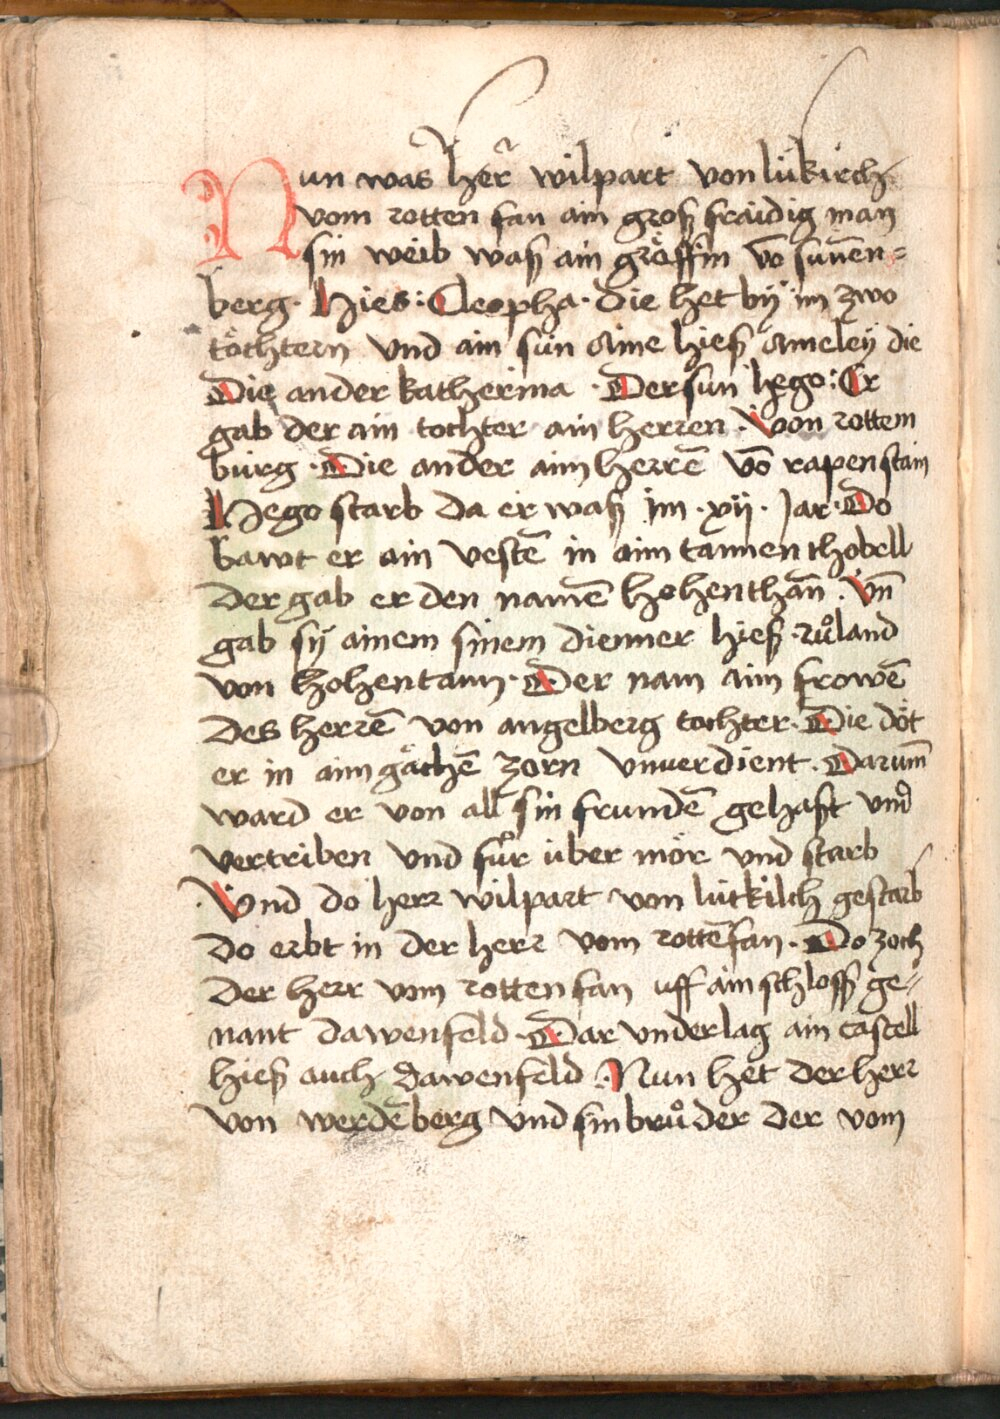 Nun was her̃ wilpart von lükirch
vom rotten fan ain groß fraidig man
sin weib waß ain gräffin vō suñen=
berg. Hies: Cleopha. die het bÿ im zwo
töchtern vnd ain sun Aine hieß Ameleÿ die
Die ander katherina. Der sun hego: Er
gab der ain tochter ain herren. Von rottem
burg. Die ander aim herrē vō rapenstain
Hego starb da er waß im .xij. Jar. Do
bawt er ain vestē in aim tannen thobell
Der gab er den namē hohenthañ. Vñ
gab sÿ ainem sinem dienner hieß ruͦland
von hohentann. Der nam aim frowē
Des herrē von angelberg tochter. Die döt
er in aim gächē zorn vnuerdient. Darum̄
ward er von all sin frundē gehaßt vnd
vertriben vnd fuͦr über mör vnd starb
Vnd do herr wilpart von lütkilch gestarb
do erbt in der herr vom rottēfan. Do zoch
der herr vom rotten fan uff ain schloss ge=
nant dawenfeld. Dar vnder lag ain castell
hieß auch dawenfeld. Nun het der herr
von werdēberg vnd sin bruͦder der vom